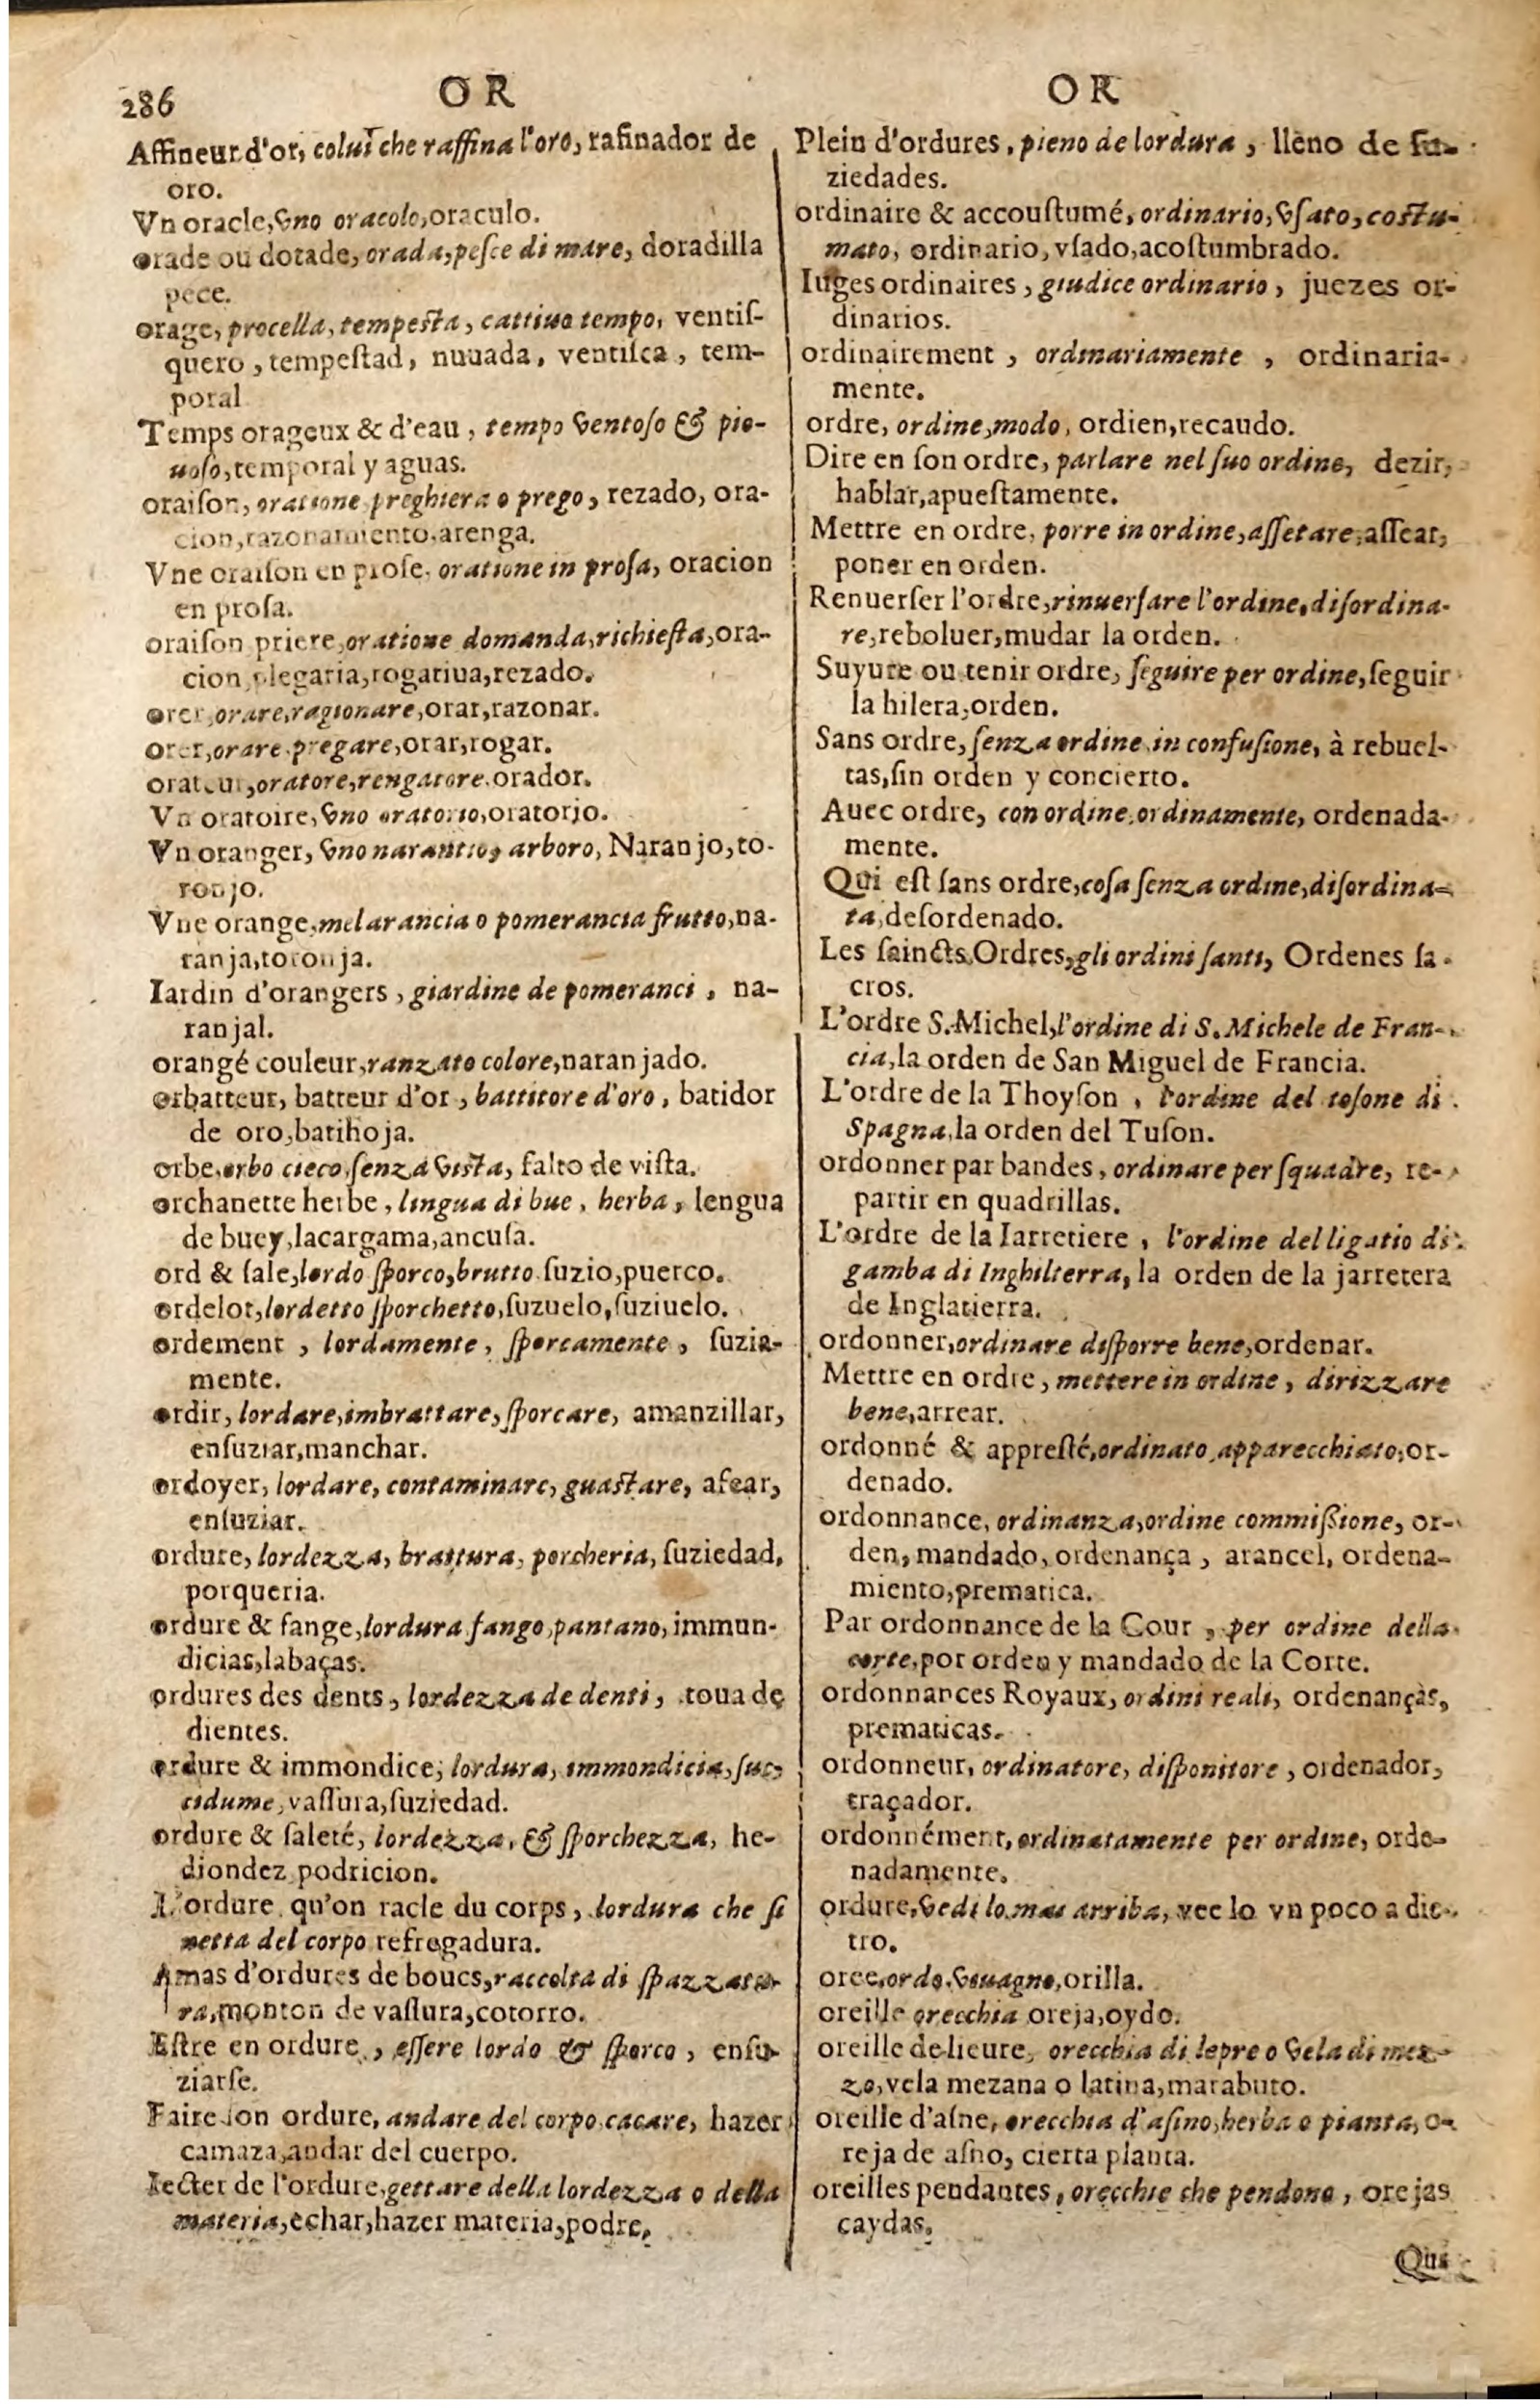 286
OR
Affineur d'or, colui che raffina l'oro, rafinador de
oro.
Vn oracle, vno oracolo, oraculo.
orade ou dorade, orada, peſce di mare, doradilla
pece.
orage, procella, tempeſta, cattiuo tempo, ventiſ-
quero, tempeſtad, nuuada, ventiſca, tem-
poral
Temps orageux & d'eau, tempo ventoſo & pio-
uoſo, temporal y aguas.
oraiſon, oratione preghiera o prego, rezado, ora-
cion, razonamiento, arenga.
Vne oraiſon en proſe, oratione in proſa, oracion
en proſa.
oraiſon priere, oratione domanda, richieſta, ora-
cion plegaria, rogatiua, rezado.
orer, orare, ragionare, orar, razonar.
orer, orare, pregare, orar, rogar.
orateur, oratore, rengatore, orador.
Vn oratoire, vno oratorio, oratorjo.
Vn oranger, vno narantio, arboro, Naranjo, to-
ronjo.
Vne orange, melarancia o pomerancia frutto, na-
ranja, toronja.
Iardin d'orangers, giardine de pomeranci, na-
ranjal.
orangé couleur, ranzato colore, naranjado.
orbatteur, batteur d'or, battitore d'oro, batidor
de oro, batihoja.
orbe, orbo cieco, ſenza viſta, falto de viſta.
orchanette herbe, lingua di bue, herba, lengua
de buey, lacargama, ancuſa.
ord & ſale, lordo ſporco, brutto ſuzio, puerco.
ordelot, lordetto ſporchetto, ſuzuelo, ſuziuelo.
ordement, lordamente, ſporcamente, ſuzia-
mente.
ordir, lordare, imbrattare, ſporcare, amanzillar,
enſuziar, manchar.
ordoyer, lordare, contaminare, guaſtare, afear,
enſuziar.
ordure, lordezza, brattura, porcheria, ſuziedad,
porqueria.
ordure & fange, lordura fango, pantano, immun-
dicias, labaças.
ordures des dents, lordezza de denti, toua de
dientes.
ordure & immondice, lordura, immondicia, ſuc-
cidume, vaſſura, ſuziedad.
ordure & ſaleté, lordezza, & ſporchezza, he-
diondez podricion.
L'ordure qu'on racle du corps, lordura che ſi
netta del corpo refregadura.
Amas d'ordures de boues, raccolta di ſpazzatu-
ra, monton de vaſſura, cotorro.
Eſtre en ordure, eſſere lordo & ſporco, enſu-
ziarſe.
Faire ſon ordure, andare del corpo, cacare, hazer
camaza, andar del cuerpo.
Iecter de l'ordure, gettare della lordezza o della
materia, echar, hazer materia, podre.
OR
Plein d'ordures, pieno de lordura, lleno de ſu-
ziedades.
ordinaire & accouſtumé, ordinario, vſato, coſtu-
mato, ordinario, vſado, acoſtumbrado.
Iuges ordinaires, giudice ordinario, juezes or-
dinarios.
ordinairement, ordinariamente, ordinaria-
mente.
ordre, ordine, modo, ordien, recaudo.
Dire en ſon ordre, parlare nel ſuo ordine, dezir,
hablar, apueſtamente.
Mettre en ordre, porre in ordine, aſſetare, aſſear,
poner en orden.
Renuerſer l'ordre, rinuerſare l'ordine, diſordina-
re, reboluer, mudar la orden.
Suyure ou tenir ordre, ſeguire per ordine, ſeguir
la hilera, orden.
Sans ordre, ſenza ordine, in confuſione, à rebuel-
tas, ſin orden y concierto.
Auec ordre, con ordine, ordinamente, ordenada-
mente.
Qui eſt ſans ordre, coſa ſenza ordine, diſordina-
ta, deſordenado.
Les ſaincts Ordres, gli ordini ſanti, Ordenes ſa-
cros.
L'ordre S. Michel, l'ordine di S. Michele de Fran-
cia, la orden de San Miguel de Francia.
L'ordre de la Thoyſon, l'ordine del toſone di
Spagna, la orden del Tuſon.
ordonner par bandes, ordinare per ſquadre, re-
partir en quadrillas.
L'ordre de la Iarretiere, l'ordine del ligatio di
gamba di Inghilterra, la orden de la jarretera
de Inglatierra.
ordonner, ordinare diſporre bene, ordenar.
Mettre en ordre, mettere in ordine, dirizzare
bene, arrear.
ordonné & appreſté, ordinato, apparecchiato, or-
denado.
ordonnance, ordinanza, ordine commiſſione, or-
den, mandado, ordenança, arancel, ordena-
miento, prematica.
Par ordonnance de la Cour, per ordine della
corte, por orden y mandado de la Corte.
ordonnances Royaux, ordini reali, ordenanças,
prematicas.
ordonneur, ordinatore, diſponitore, ordenador,
traçador.
ordonnément, ordinatamente per ordine, orde-
nadamente.
ordure, vedi lo mas arriba, vee lo vn poco a die-
tro.
oree, ordo, viuagno, orilla.
oreille orecchia oreja, oydo.
oreille de lieure, orecchia di lepre o vela di mez-
zo, vela mezana o latina, marabuto.
oreille d'aſne, orecchia d'aſino, herba o pianta, o-
reja de aſno, cierta planta.
oreilles pendantes, orecchie che pendono, orejas
caydas.
Qui